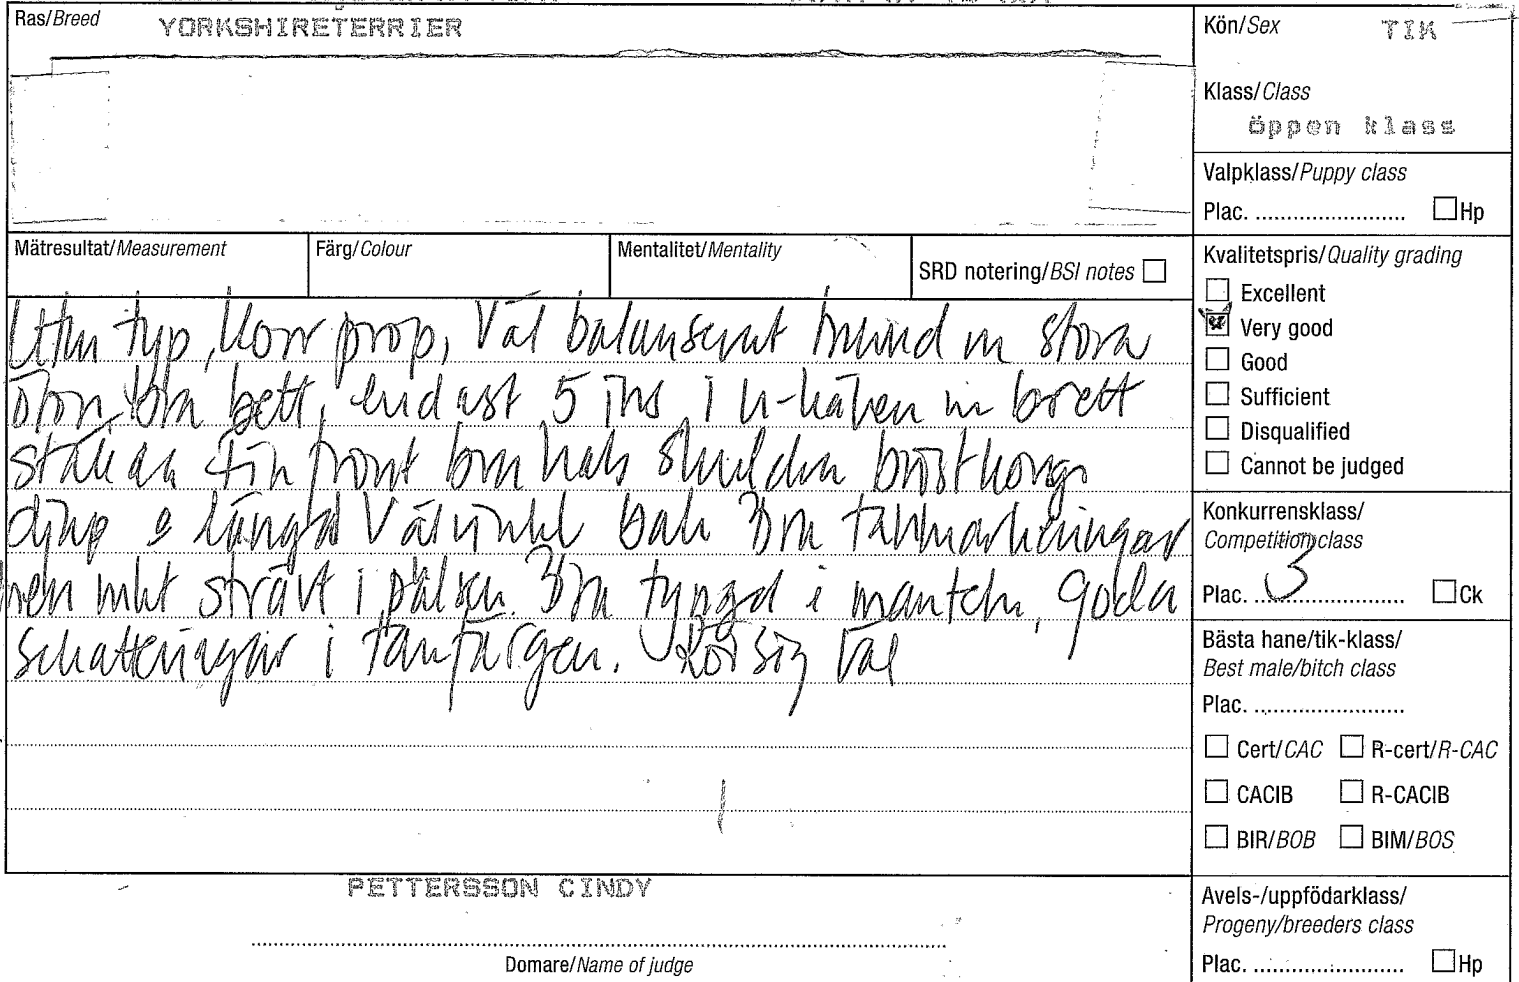 Ras/Breed
YORKSHIRETERRIER
Kön/Sex TIK
Klass/Class
öppen klass
Valpklass/Puppy class
Plac. ........................ Hp
Mätresultat/Measurement Färg/Colour Mentalitet/Mentality SRD notering/BSI notes
Kvalitetspris/Quality grading
Excellent
Very good
Good
Sufficient
Disqualified
Cannot be judged
typ, korr prop, Väl balanserat huvud m stora
öron, bra bett, endast 5 ins i u-käken m brett
front bra hals skuldra bröstkorg
djup o längd Välvinkl bak Bra tanmarkeringar
men mkt strävt i pälsen. Bra tyngd i manteln, goda
schatteringar i tanfärgen. Rör sig väl
Konkurrensklass/
Competition class
Plac. 3 ........................ Ck
Bästa hane/tik-klass/
Best male/bitch class
Plac. ........................
Cert/CAC R-cert/R-CAC
CACIB R-CACIB
BIR/BOB BIM/BOS
PETTERSSON CINDY
Domare/Name of judge
Avels-/uppfödarklass/
Progeny/breeders class
Plac. ........................ Hp